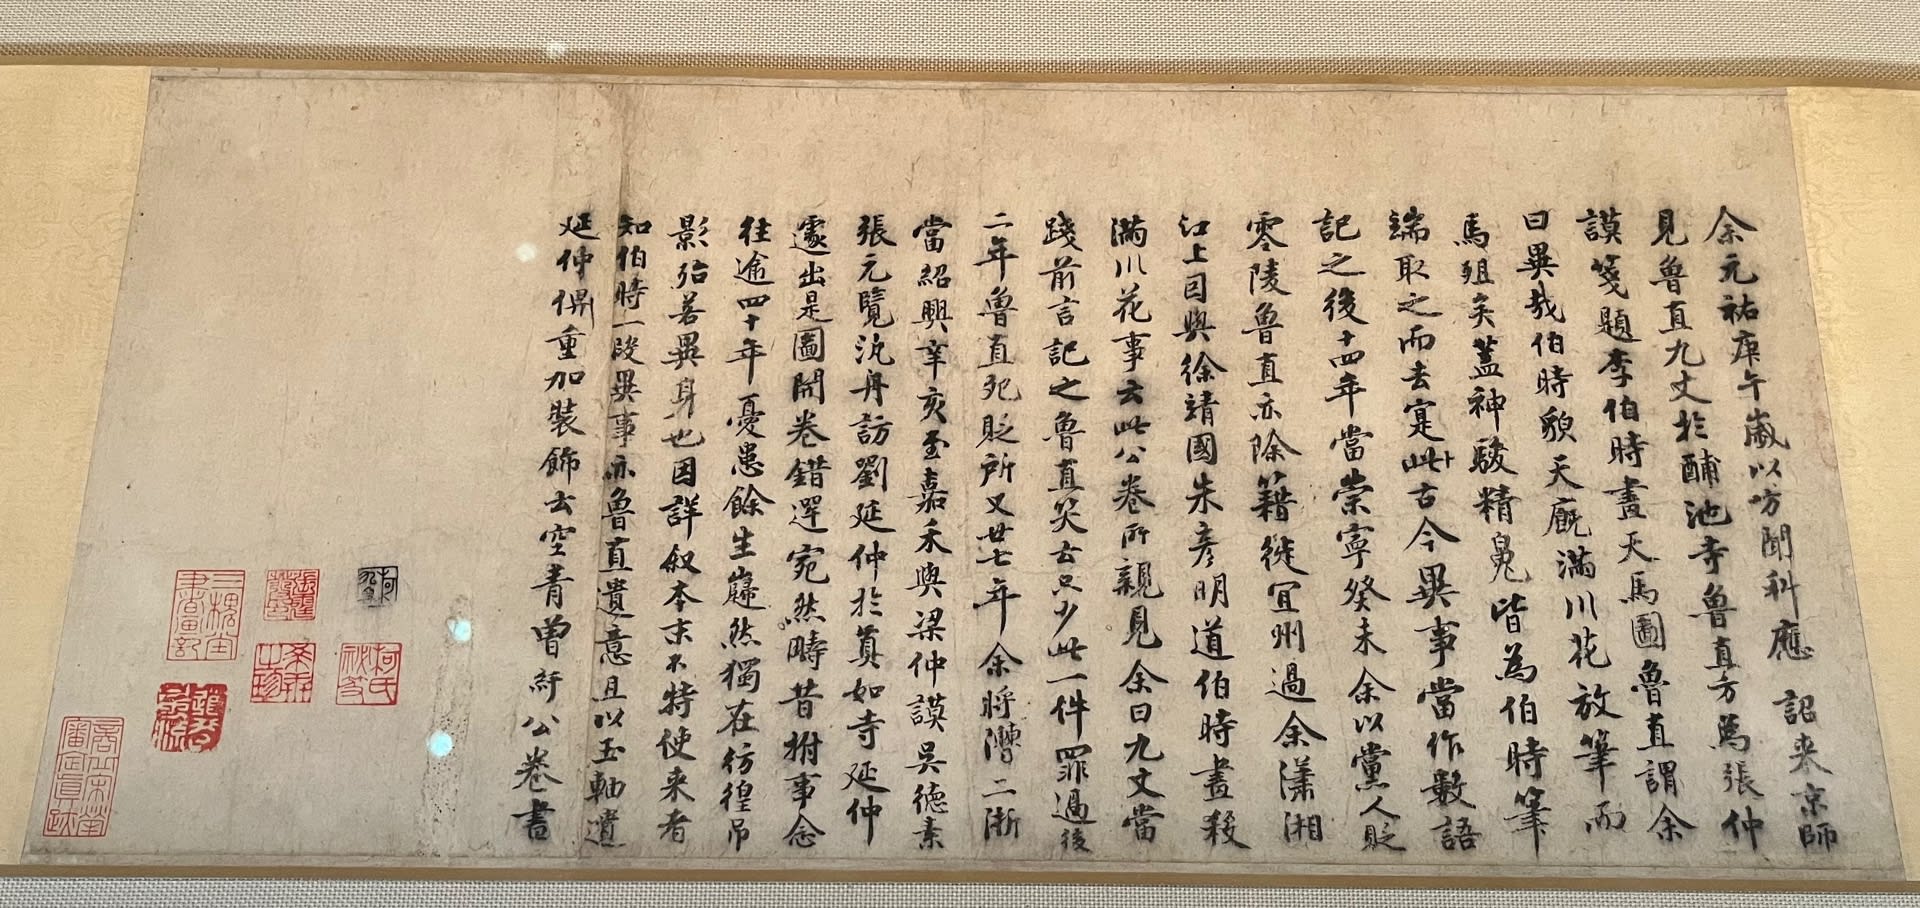 余元祐庚午歲以方聞科應 詔来京師
見魯直九丈於酺池寺魯直方為張仲
謨箋題李伯時畫天馬圖魯直謂余
曰異哉伯時貌天厩滿川花放筆而
馬殂矣蓋神駿精魄皆為伯時筆
端取之而去寔此古今異事當作數語
記之後十四年當崇寧癸未余以黨人貶
零陵魯直亦除籍徙宜州過余瀟湘
江上因與徐靖國朱彦明道伯時畫殺
滿川花事云此公卷所親見余曰九丈當
踐前言記之魯直笑云只少此一件罪過後
二年魯直死貶所又廿七年余將漕二浙
當紹興辛亥至嘉禾與梁仲謨吳德素
張元覽汎舟訪劉延仲於真如寺延仲
遽出是圖開卷錯愕宛然疇昔拊事念
往逾四十年憂患餘生巋然獨在彷徨弔
影殆若異身也因詳叙本末不特使来者
知伯時一段異事亦魯直遺意且以玉軸遺
延仲俾重加装飾云空青曾紆公卷書
柯氏秘笈
商丘宋犖審定真跡